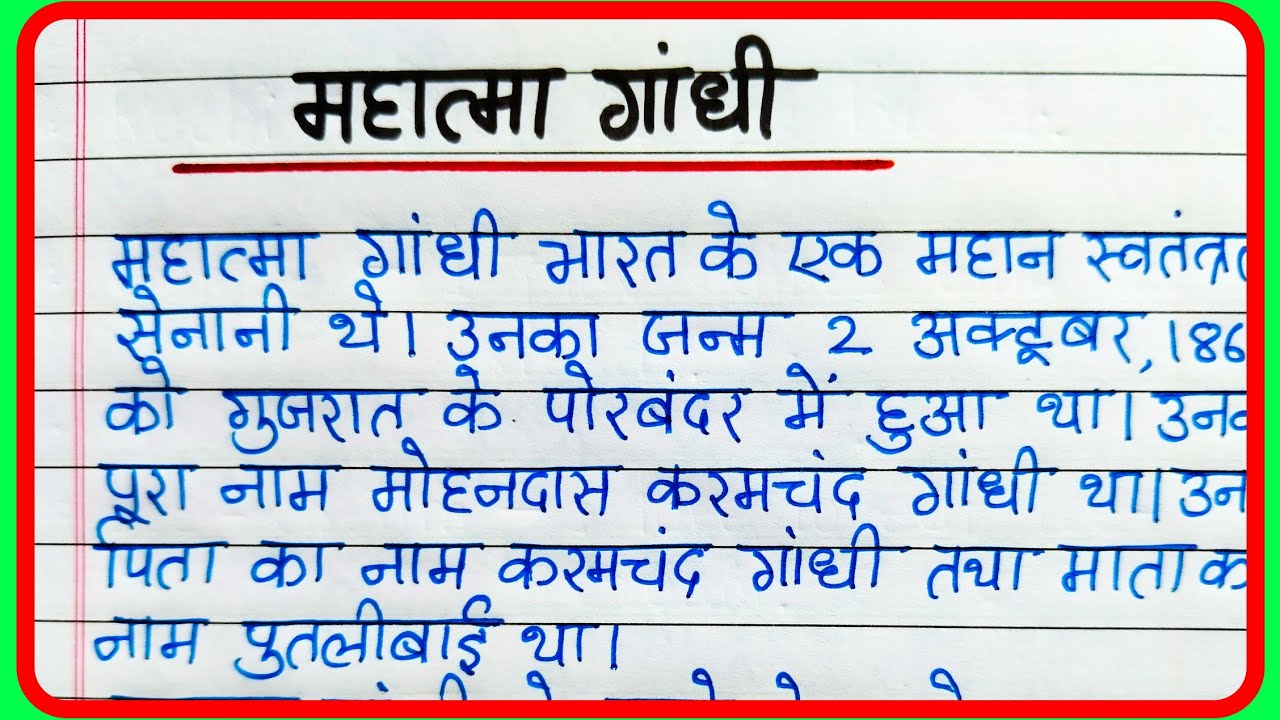 महात्मा गांधी
महात्मा गांधी भारत के एक महान स्वतंत्रत
सेनानी थे। उनका जन्म 2 अक्टूबर, 186
को गुजरात के पोरबंदर में हुआ था। उनक
पूरा नाम मोहनदास करमचंद गांधी था। उन
पिता का नाम करमचंद गांधी तथा माता क
नाम पुतलीबाई था।